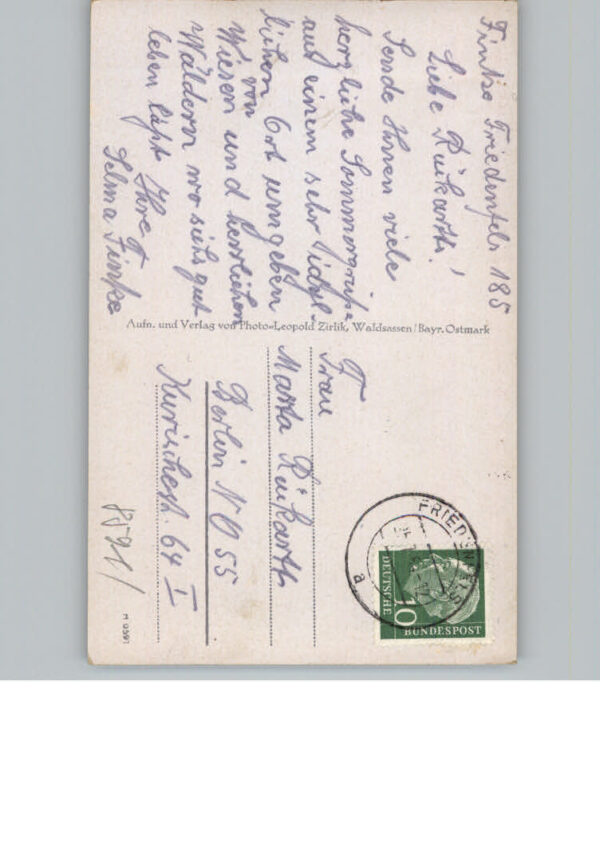 Finke Friedenfels 185
Liebe Rückarth!
Sende Ihnen viele
herzliche Sommergrüße
aus einem sehr idyl-
lichen Ort umgeben
von
Wiesen und herrlichen
Wäldern wo sichs gut
leben läßt Ihre
Selma Finke
Aufn. und Verlag von Photo=Leopold Zirlik, Waldsassen/Bayr. Ostmark
Frau
Marta Rückarth
Berlin NO 55
Kurischestr. 64 I
8591/
FRIEDENFELS
a
DEUTSCHE
10
BUNDESPOST